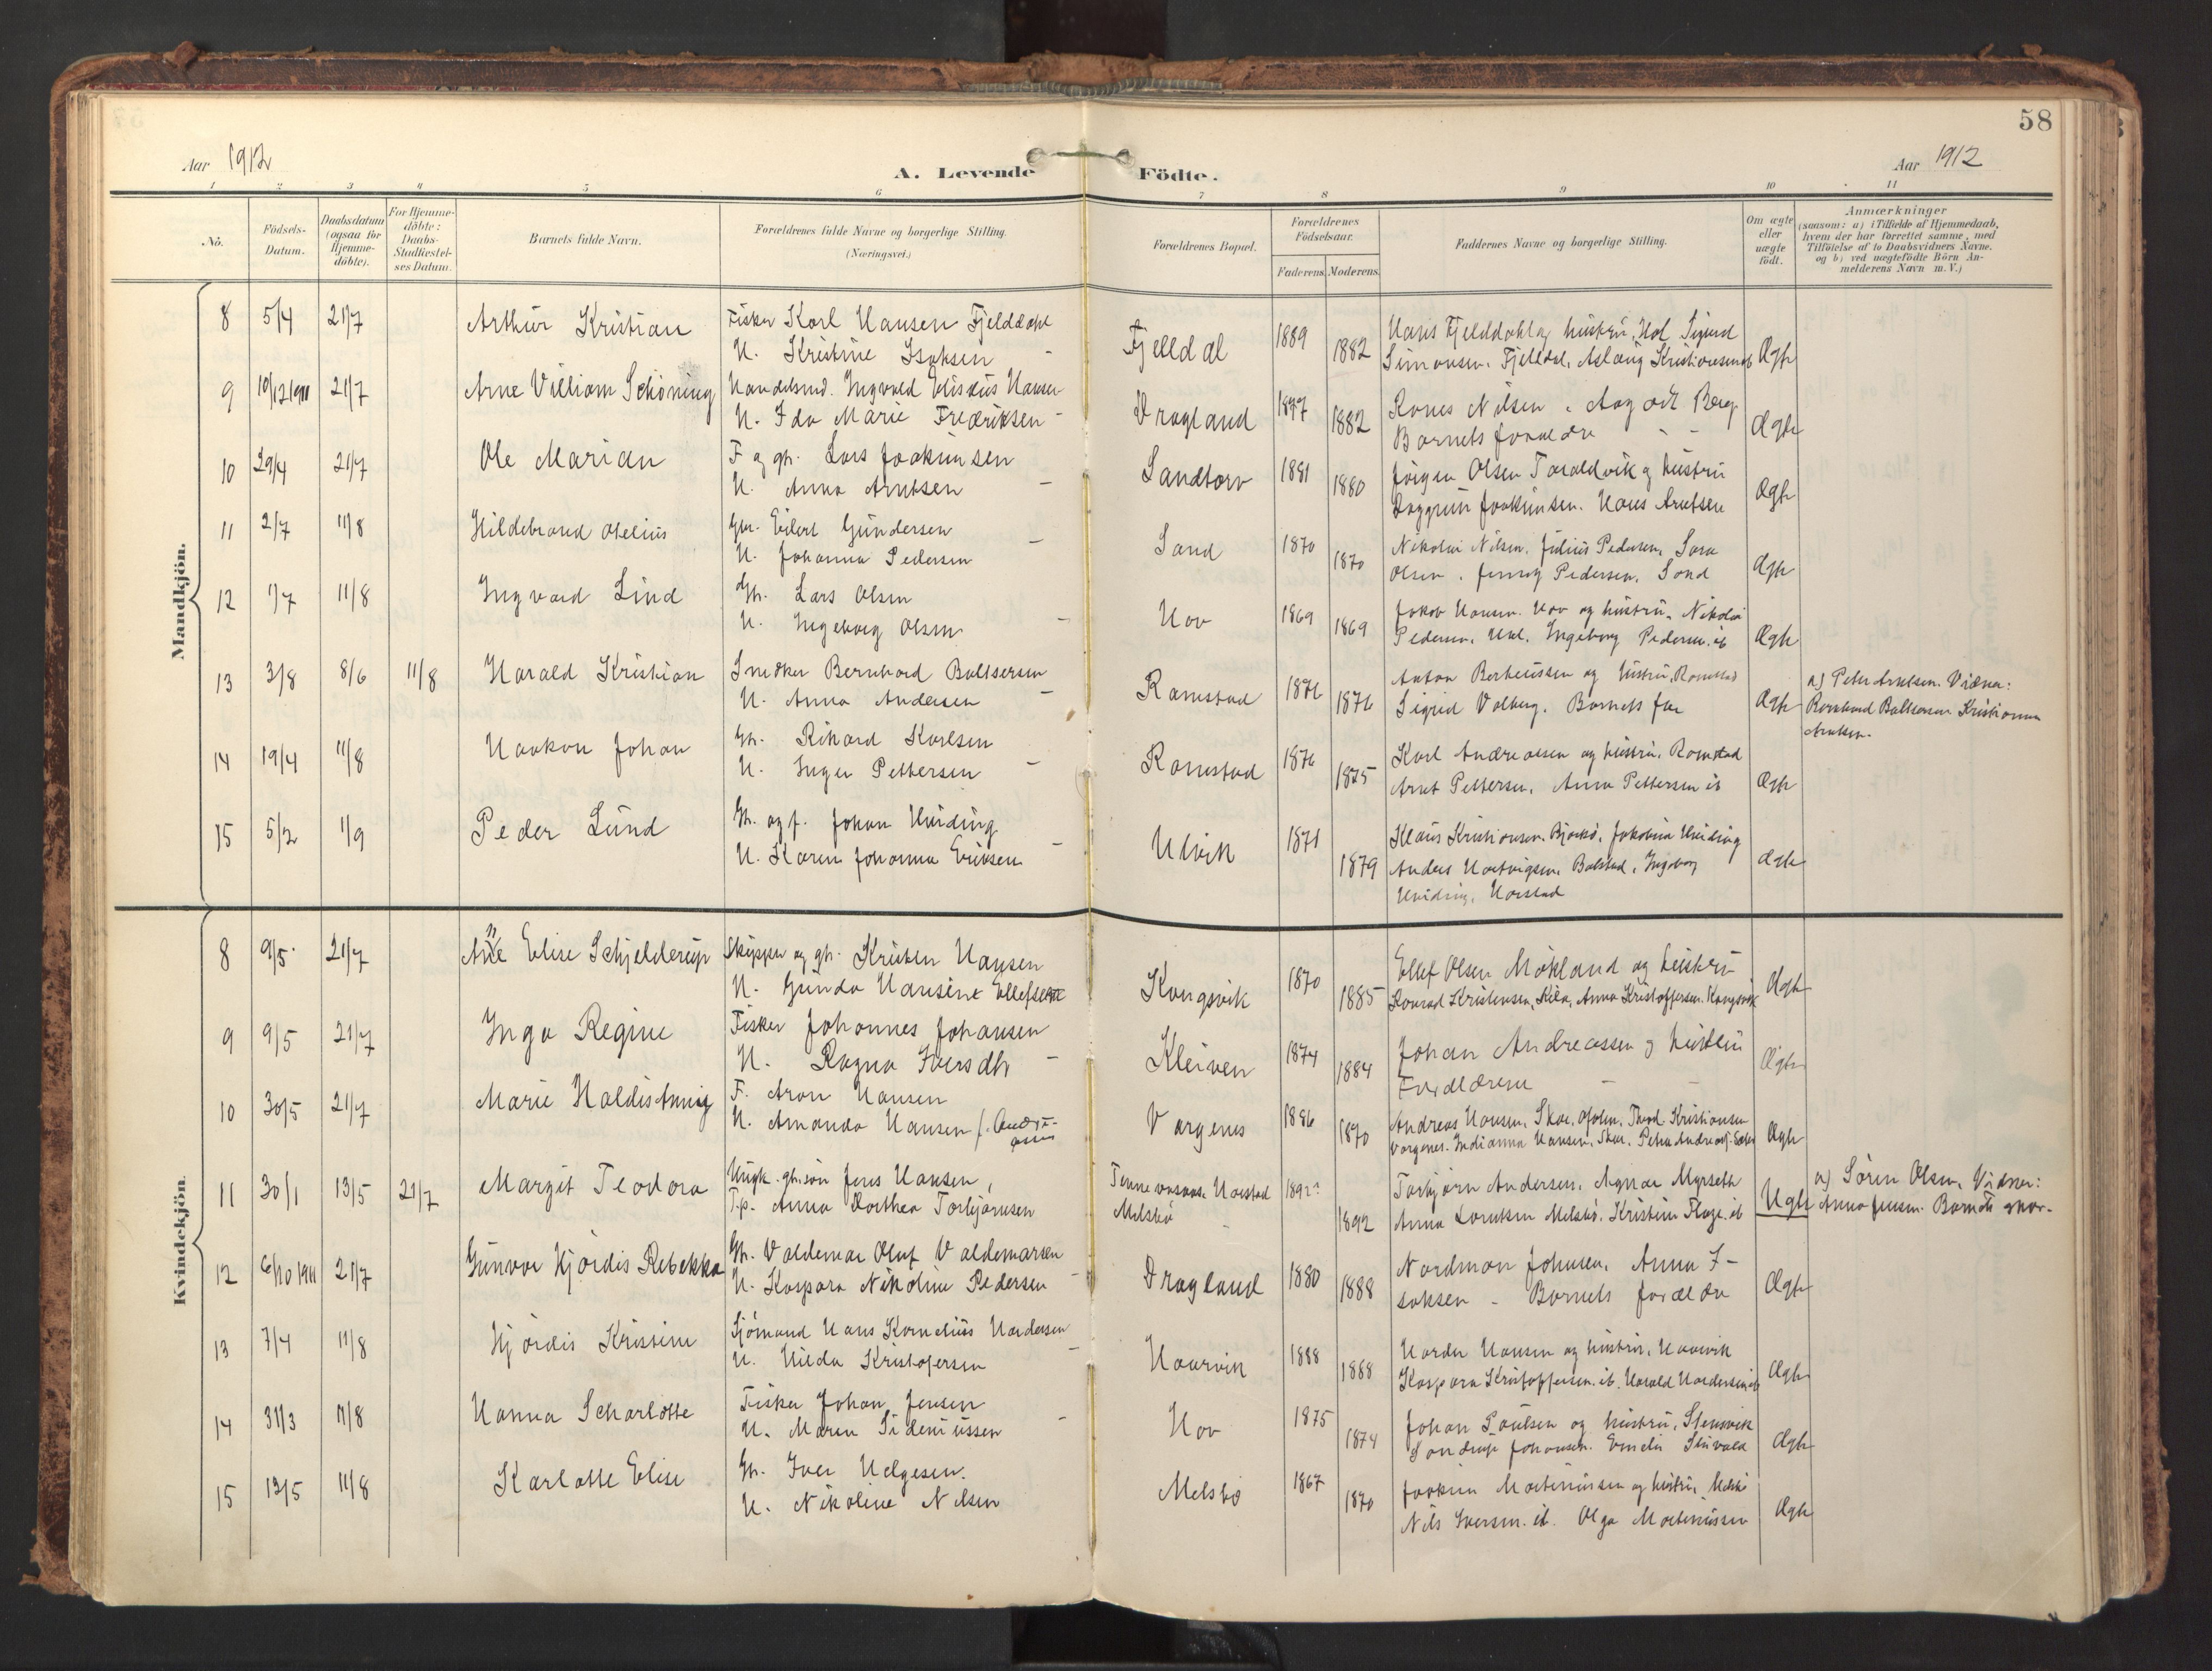 58
Aar 1912
A. Levende Födte.
Aar 1912
1 2 3 4 5 6 7 8 9 10 11
No.
Födsels-Datum.
Daabsdatum (ogsaa for Hjemme-döbte).
For Hjemme-döbte: Daabs-Stadfæstel-ses Datum.
Barnets fulde Navn.
Forældrenes fulde Navne og borgerlige Stilling.
(Næringsvei.)
Forældrenes Bopæl.
Forældrenes Födselsaar.
Faderens. Moderens.
Faddernes Navne og borgerlige Stilling.
Om ægte eller uægte födt.
Anmærkninger
(saasom: a) i Tilfælde af Hjemmedaab,
hvem der har forrettet samme, med
Tilföielse af to Daabsvidners Navne.
og b) ved uægtefödte Börn An-
melderens Navn m. V.)
Mandkjön.
8 5/4 21/7 Arthur Kristian Fisker Karl Hansen Fjelddahl
H. Kristine Isaksen
Fjelldal 1889 1882 Hans Fjelddahl og hustru. Hol. Sigurd
Simonsen, Fjelldal, Aslaug Kristiansen ib Ægte
9 10/12 1911 21/7 Arne Villiam Schöning Handelsmd. Ingvald Elisæus Hansen
H. Ida Marie Fredriksen
Dragland 1882 Nilsen Berg
Barnets forældre Ægte
10 29/4 21/7 Ole Marian F. og gbr. Lars Joakimsen
H. Anna Arntsen
Sandtorv 1881 1880 Jörgen Olsen Taraldvik og hustru
Dagrun Joakimsen. Hans Arntsen Ægte
11 2/7 11/8 Hildebrand Otelius Gbr. Eilert Gundersen
H. Johanna Pedersen
Sand 1870 1870 Nikolai Nilsen. Julius Pedersen, Sara
Olsen. Jenny Pedersen. Sand Ægte
12 1/7 11/8 Ingvard Lind Gb. Lars Olsen
H. Ingeborg Olsen
Hov 1869 1869 Jakob Hansen. Hov og hustru. Nikolai
Pedersen. Ingeborg Pedersen. ib Ægte
13 3/8 8/6 11/8 Harald Kristian Snedker Bernhard Baltsersen
H. Anna Andersen
Ramstad 1876 1876 Anton Bertheussen og hustru. Ramstad
Sigrid Valberg. Barnets far Ægte
a) Peter Arntsen. Vidner:
Bernhard Baltsersen Kristianna
Arntsen.
14 19/4 11/8 Haakon Johan Gb. Rikard Karlsen
H. Inger Pettersen
Ramstad 1876 1875 Karl Andreassen og hustru. Ramstad
Arnt Pettersen. Anna Pettersen ib Ægte
15 5/2 1/9 Peder Lund Gb. og f. Johan Hviding
H. Karen Johanna Eriksen
Ulvik 1871 1879 Klaus Kristiansen. Bjarkö. Jakobine Hviding
Anders Hartvigsen. Balstad. Ingeborg
Hviding. Harstad Ægte
Kvindekjön.
8 9/5 21/7 Anne Elise Schjelderup Skipper og gb. Kristen Hansen
H. Gunda Hansine Ellefsen
Kongsvik 1870 1885 Ellef Olsen Mökland og hustru
Konrad Kristensen, Kila, Anna Kristoffersen. Kongsvik Ægte
9 9/5 21/7 Inga Regine Fisker Johannes Johansen
H. Ragna Iversdtr
Kleiven 1874 1884 Johan Andreassen og hustru
Forældrene Ægte
10 30/5 21/7 Marie Haldis Annig F. Aron Hansen
H. Amanda Hansen f. Andreasen
Vargenes 1886 1890 Andreas Hansen. Skar. Ofoten. Kristiansen
Vargenes. Indianna Hansen. Skar. Ægte
11 30/1 13/5 21/7 Margit Teodora Ungk. gb.sön Jens Hansen,
T.p. Anna Dorthea Torbjörnsen
Harstad
Melsbö
1892 1892 Torbjörn Andersen. Agnar Myrseth
Anna Melsbö. Kristine ib Uægte
a) Sören Olsen. Vidner:
Anna Jensen. Barnets mor.
12 6/10 1911 21/7 Gunvor Hjördis Rebekka Gb. Valdemar Oluf Valdemarsen
H. Kaspara Nikoline Pedersen
Dragland 1880 1888 Nordman Johnsen. Anna I-
saksen - Barnets forældre Ægte
13 7/4 11/8 Hjördis Kristine Sjömand Hans Kornelius Hardersen
H. Hilda Kristofersen
Haarvik 1888 1888 Harder Hansen og hustru. Haarvik
Kaspara Kristoffersen. ib. Harald Hardersen ib Ægte
14 31/3 11/8 Hanna Scharlotte Fisker Johan Jensen
H. Maren Sideniussen
Hov 1875 1874 Johan Paulsen og hustru. Stensvik
Johansen. Emelie Ægte
15 13/5 11/8 Karlotte Elise Gb. Iver Helgesen.
H. Nikoline Nilsen
Melsbö 1867 1870 Joakim Martinussen og hustru. Melsbö
Nils Iversen. ib. Olga Martinussen Ægte